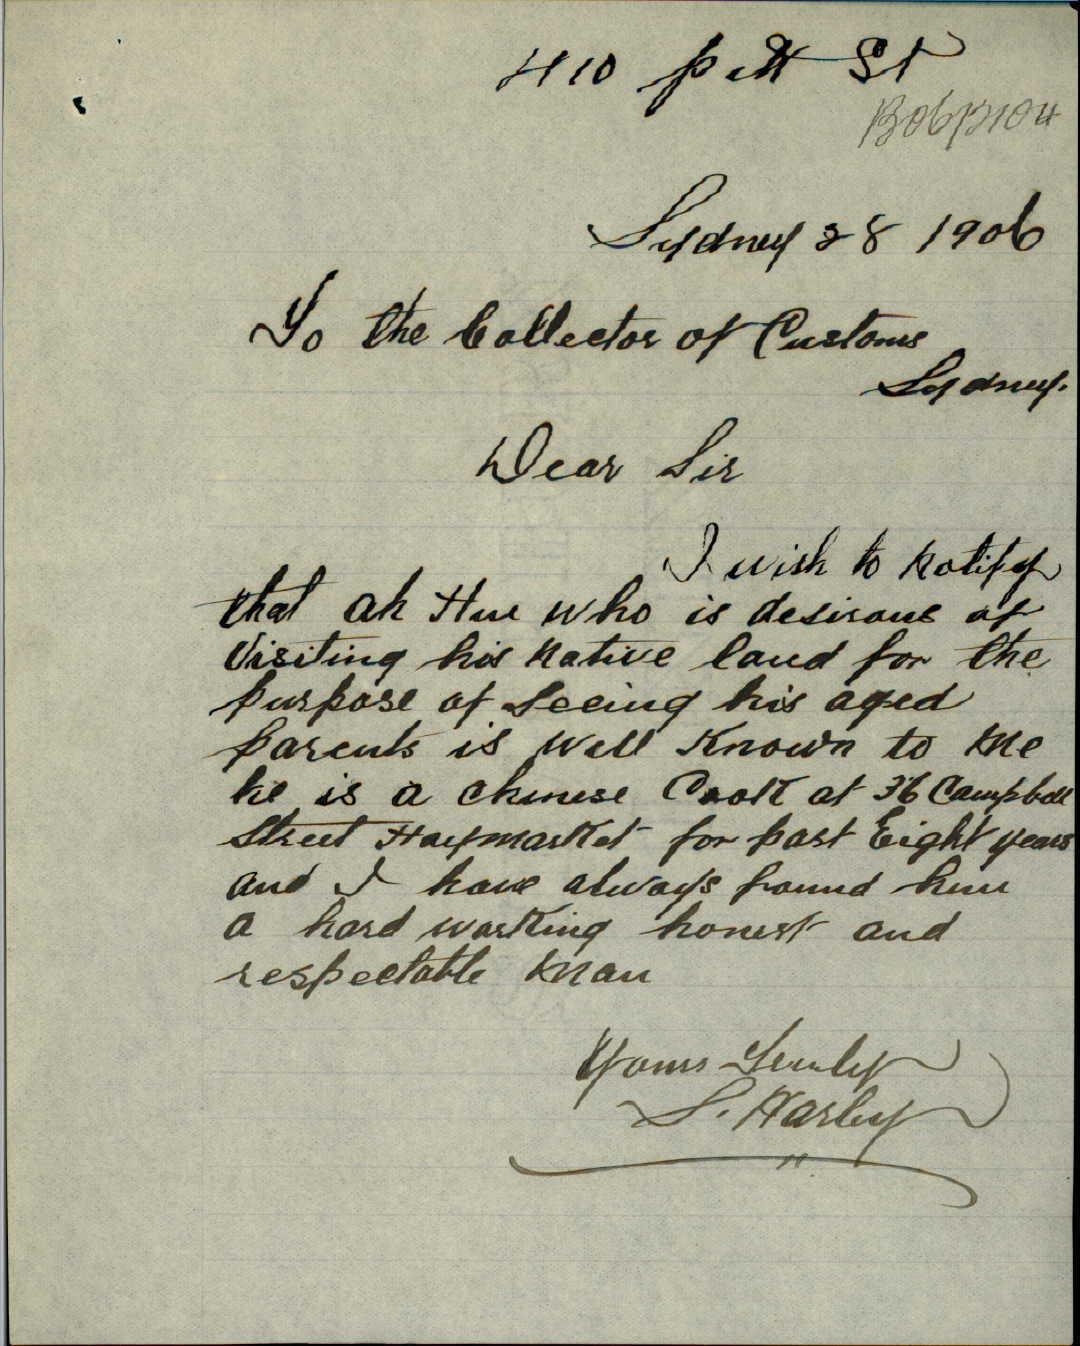 410 Pitt St
B06/2104
Sydney 28 1906
To the Collector of Customs
Sydney.
Dear Sir
I wish to Notify
that Ah Hue who is desirous of
Visiting his Native land for the
purpose of Seeing his aged
parents is Well Known to Me
he is a chinese Cook at 36 Campbell
Street Haymarket for past Eight years
and I have always found him
a hard working honest and
respectable Man
Yours
S. Harley